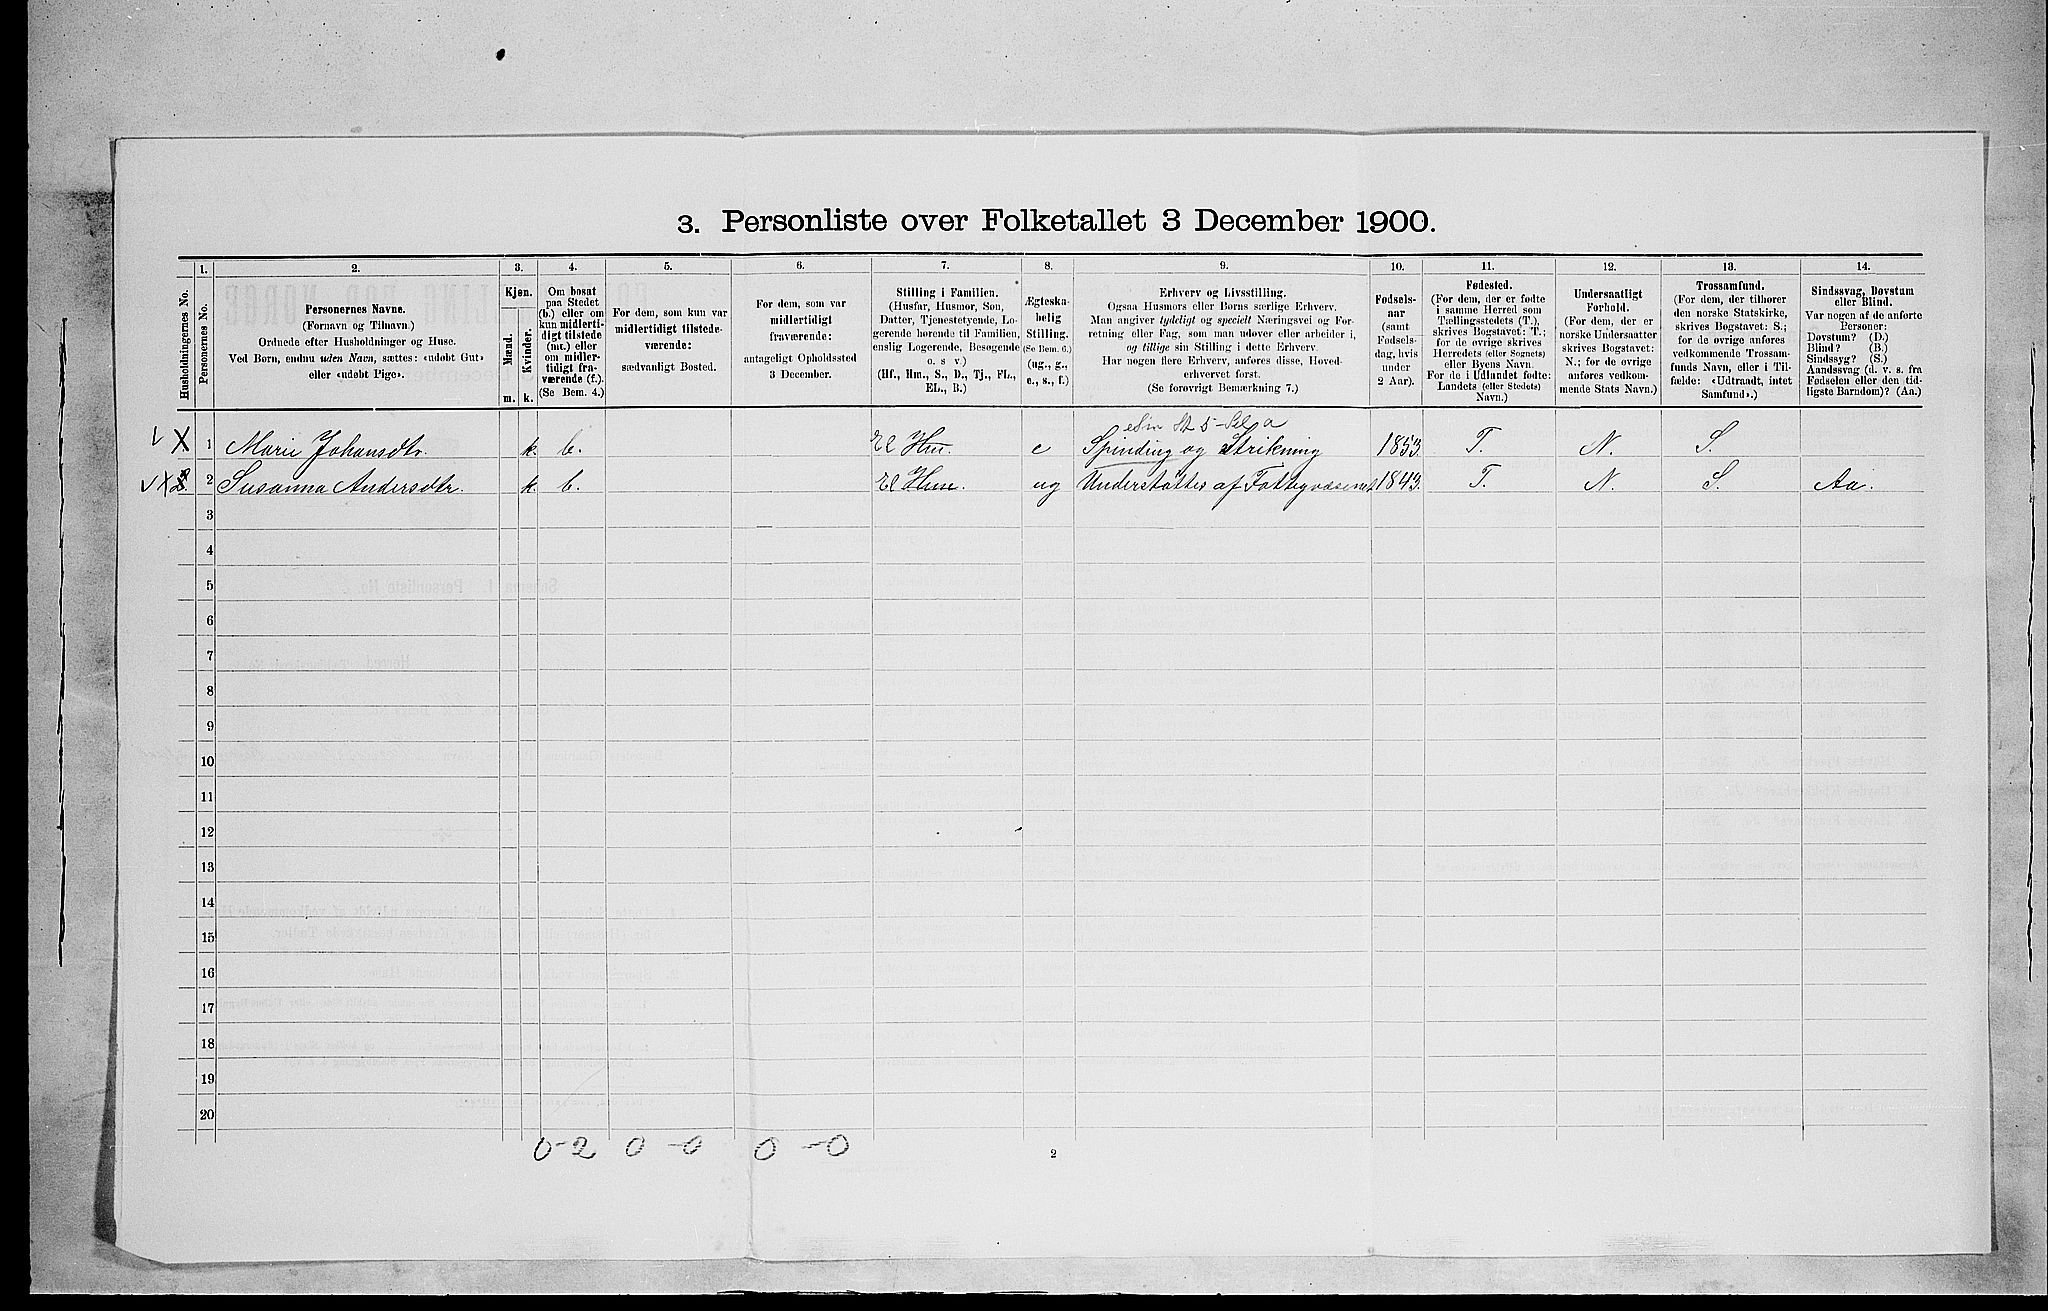 3. Personliste over Folketallet 3 December 1900.
1. 2. 3. 4. 5. 6. 7. 8. 9. 10. 11. 12. 13. 14.
Husholdningernes No.
Personernes No.
Personernes Navne.
(Fornavn og Tilnavn.)
Ordnede efter Husholdninger og Huse.
Ved Børn, endnu uden Navn, sættes: «udøbt Gut»
eller «udøbt Pige».
Kjøn.
Mænd.
Kvinder.
m. k.
Om bosat
paa Stedet
(b.) eller om
kun midlerti-
digt tilstede
(mt.) eller
om midler-
tidigt fra-
værende (f.).
(Se Bem. 4.)
For dem, som kun var
midlertidigt tilstede-
værende:
sædvanligt Bosted.
For dem, som var
midlertidigt
fraværende:
antageligt Opholdssted
3 December.
Stilling i Familien.
(Husfar, Husmor, Søn,
Datter, Tjenestetyende, Lo-
gerende hørende til Familien,
enslig Logerende, Besøgende
o. s v.)
(Hf., Hm., S., D., Tj., FL.,
EL., B.)
Ægteska-
belig
Stilling.
(Se Bem. 6.)
(ug., g.,
e., s., f.)
Erhverv og Livsstilling.
Ogsaa Husmors eller Børns særlige Erhverv.
Man angiver tydeligt og specielt Næringsvei og For-
retning eller Fag, som man udøver eller arbeider i,
og tillige sin Stilling i dette Erhverv.
Har nogen flere Erhverv, anføres disse, Hoved-
erhvervet først.
(Se forøvrigt Bemærkning 7.)
Fødsels-
aar
(samt
Fødsels-
dag, hvis
under
2 Aar).
Fødested.
(For dem, der er fødte
i samme Herred som
Tællingsstedets (T.),
skrives Bogstavet: T.;
for de øvrige skrives
Herredets (eller Sognets)
eller Byens Navn.
For de i Udlandet fødte:
Landets (eller Stedets)
Navn.)
Undersaatligt
Forhold.
(For dem, der er
norske Undersaatter
skrives Bogstavet:
N.; for de øvrige
anføres vedkom-
mende Stats Navn.)
Trossamfund.
(For dem, der tilhører
den norske Statskirke,
skrives Bogstavet: S.;
for de øvrige anføres
vedkommende Trossam-
funds Navn, eller i Til-
fælde: «Udtraadt, intet
Samfund».)
Sindssvag, Døvstum
eller Blind.
Var nogen af de anførte
Personer:
Døvstum? (D.)
Blind? (B.)
Sindssyg? (S.)
Aandssvag (d. v. s. fra
Fødselen eller den tid-
ligste Barndom)? (Aa.)
X 1 Marie Johansdtr. k. b. El Hm. e Spinding og Strikning 1853. T. N. S.
X 2 Susanna Andersdtr. k. b. El Hm. ug Understøttes af Fattigvæsenet 1843. T. N. S. Aa.
3
4
5
6
7
8
9
10
11
12
13
14
15
16
17
18
19
20
0-2 0-0 0-0
2